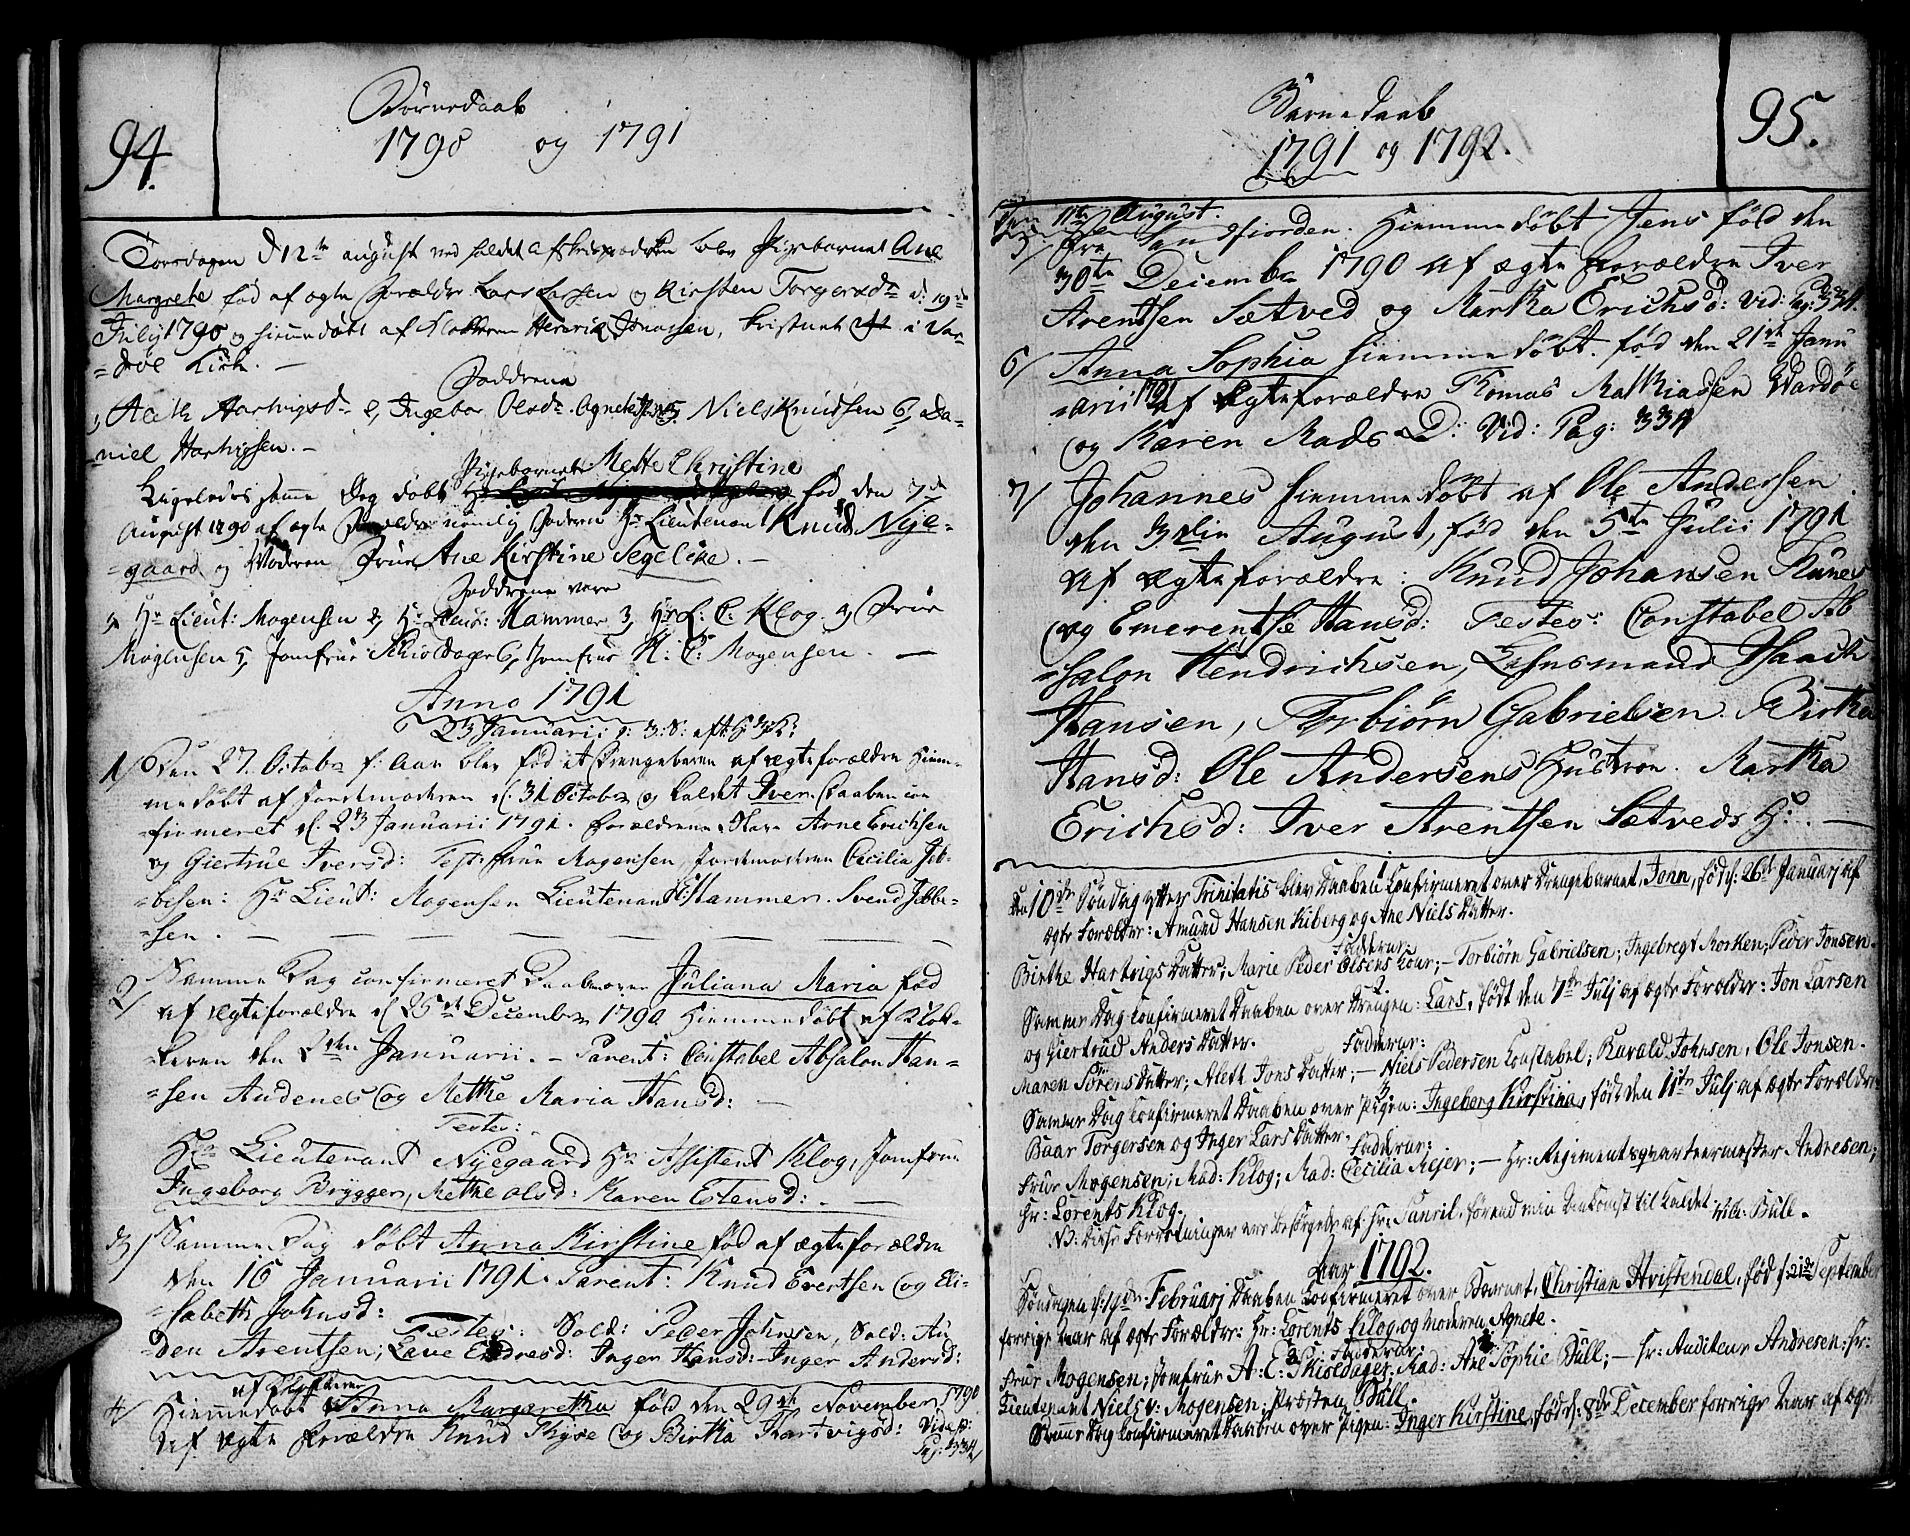 94.
Børnedaab
1790 og 1791
Torsdagen d 12te august ved holdet af skriftprædiken blev Pigebarnet Ane
Margrete fød af ægte Forældre Lars Larssen og Kirsten Torgersdr d: 19de
July 1790 og hiemmedøbt af Klokkeren Henrik Jonassen, kristnet i Var-
=døe Kirke. —
Faddrene
1, Aleth Hartvigsdr 2, Ingebor Olsdr. Agnete 5, Niels Knudsen 6, Da-
=niel Hartvigsen. —
Pigebarnet Mette Christine
Ligeledes samme Dag døbt fød den 7de
August 1790 af ægte Forældre nemlig Faderen Hr Lieutenant Knud Nye-
=gaard og Moderen Frue Ane Kirstine Segelcke. —
Faddrene vare
1, Hr Lieut: Mogensen 2, Hr Lieut: Hammer 3, Hr L: C. Klog. 4, Frue
Mogensen 5, Jomfrue Schioldager 6, Jomfrue K: C: Mogensen. —
Anno 1791
23 Januarii 3: S: eft: H: 3 K:
1/ Den 27. Octobr f: Aar blev fød et Drengebarn af ægteforældre hiem-
medøbt af Jordemoderen d. 31 Octobr og kaldet Iver. Daaben con
firmeret d. 23 Januarii 1791. Forældrene vare Arne Erichsen
og Giertrue Iversd: Test: Frue Mogensen, Jordemoderen Cecilia Jeb-
=bisen: Hr Lieut: Mogensen Lieutenant Hammer. Svend Jebbe-
=sen. — — — — —
2/ Samme Dag confirmeret Daaben over Juliana Maria fød
af ægteforældre d 25de December 1790 Hiemmedøbt af Klok-
keren den 2den Januarii. — Parent: Constabel Absalon Han-
=sen Andenes og Methe Maria Hansd: —
Testes:
Hr Lieutenant Nyegaard Hr Assistent Klog, Jomfrue
Ingeborg Brygger, Methe Olsd: Karen Estensd: —
3/ Samme Dag døbt Anna Kirstine fød af ægteforældre
den 16 Januarii 1791. Parent: Knud Evertsen og Eli-
=sabeth Johnsd:
Testes: Sold: Peder Johnsen, Sold: An
den Arentsen; Lave Endresd: Inger Hansd: Inger Andersd:
af Klokkeren
4/ Hiemmedøbt Anna Margretha fød den 29de November 1790
af ægte forældre Knud Thyse og Birtha Hartvigsd: Vid:
Pag: 334
95.
Barnedaab
1791 og 1792.
Den 11te August.
5/ Fra Sandfiorden. Hiemmedøbt Jens fød den
30te Decembr 1790 af ægte forældre Iver
Arentsen Sætved og Martha Erichsd: Vid: Pag: 334.
6/ Anna Sophia hiemmedøbt. fød den 21de Janu
=arii 1791 af ægteforældre Thomas Mathiasen Wardöe
og Karen Mads D: Vid: Pag: 334
7/ Johannes hiemmedøbt af Ole Andersen
den 3die August, fød den 5te Julii 1791
af ægteforældre: Knud Johansen Kunes
og Emerentse Hansd: Testes: Constabel Ab
=salon Hendrichsen, Lehnsmand Isaach
Hansen, Torbiörn Gabrielsen. Birtha
Hansd: Ole Andersens Hustroe. Martha
Erichsd: Iver Arentsen Sætveds H: —
1
Den 10de Søndag efter Trinitatis blev Daaben Confirmeret over Drengebarnet, John, fød d: 26de Januarj af
ægte Forældre: Amund Hansen Kiberg og Ane Niels Datter.
Fadderne:
Birthe Hartvigs Datter; Marie Peder Olsens Kone; — Torbiørn Gabrielsen; Ingebregt Morken; Peder Jonsen.
2
Samme Dag Confirmeret Daaben over Drengen: Lars, født den 7de Julj af ægte Forældre: Jon Larsen
og Giertrud Anders Datter.
Fadderne:
Maren Sørens Datter; Aleth Jons Datter; — Niels Pedersen Constabel; Harald Johnsen, Ole Jonsen.
3
Samme Dag Confirmeret Daaben over Pigen: Ingeborg Kirstina, født den 11te Julj af ægte Forældre:
Baar Torgersen og Inger Lars Datter.
Fadderne:
Frue Mogensen; Mad: Klog; Mad: Cecilia Mejer; — Hr: Regimentsqvarteermester Andresen;
Hr: Lorents Klog.
NB: Disse Forretninger ere besørgede af Hr: Tanril, førend min Ankomst til Kaldet. Bull.
Aar 1792.
1
Søndagen d: 19de Februarj Daaben Confirmeret over Barnet, Christian Hvistendal, fød d: 21de September
forrige Aar af ægte Forældre: Hr: Lorents Klog og Moderen Agnete.
Fadderne:
Frue Mogensen; Jomfrue A: C: Skioldager; Mad: Ane Sophie Bull; — Hr: Auditeur Andresen; Hr:
Lieutenant Niels v: Mogensen; Præsten Bull.
2
Samme Dag Confirmeret Daaben over Pigen: Inger Kirstine, fød d: 8de December forrige Aar af ægte